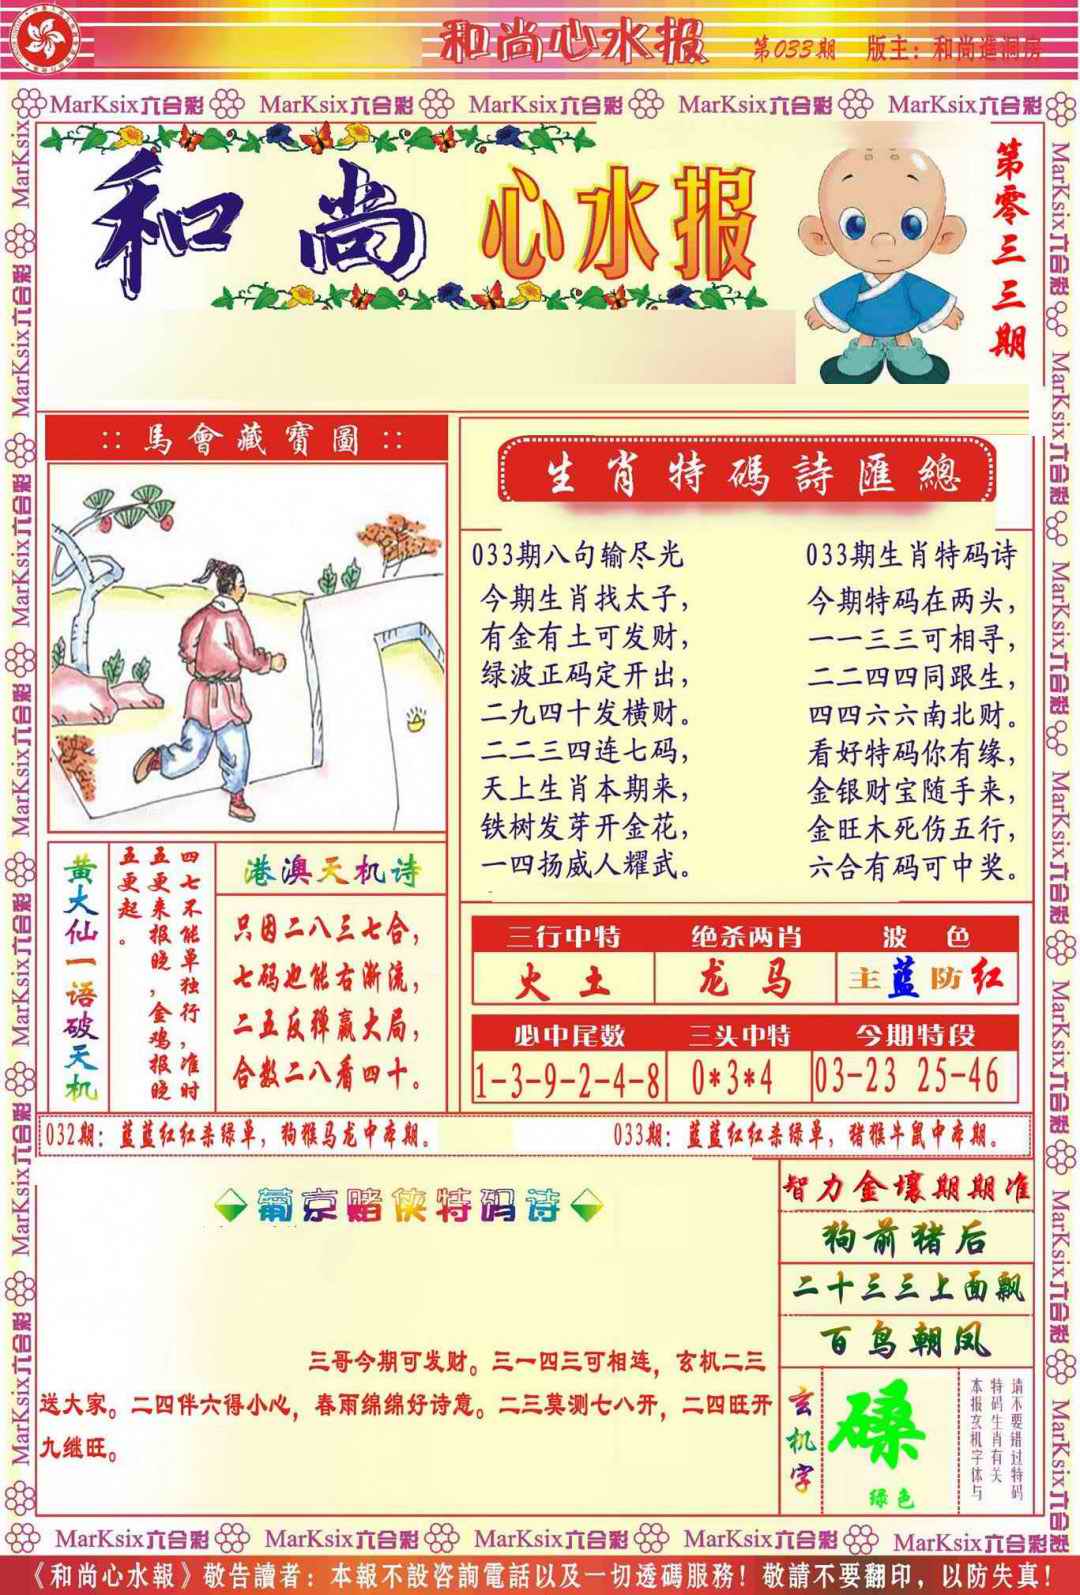 和尚心水报 第033期 版主：和尚進洞房
MarKsix六合彩 MarKsix六合彩 MarKsix六合彩 MarKsix六合彩 MarKsix六合彩
和尚心水报
第零三三期
::馬會藏寶圖::
生肖特碼詩匯總
033期八句输尽光
今期生肖找太子，
有金有土可发财，
绿波正码定开出，
二九四十发横财。
二二三四连七码，
天上生肖本期来，
铁树发芽开金花，
一四扬威人耀武。
033期生肖特码诗
今期特码在两头，
一一三三可相寻，
二二四四同跟生，
四四六六南北财。
看好特码你有缘，
金银财宝随手来，
金旺木死伤五行，
六合有码可中奖。
黄大仙一语破天机
四七不能单独行，准时
五更来报晓，金鸡报晓
五更起。
港澳天机诗
只因二八三七合，
七码也能右渐流，
二五反弹赢大局，
合数二八看四十。
三行中特 绝杀两肖 波色
火土 龙马 主蓝防红
必中尾数 三头中特 今期特段
1-3-9-2-4-8 0*3*4 03-23 25-46
032期：蓝蓝红红杀绿单，狗猴马龙中本期。
033期：蓝蓝红红杀绿单，猪猴牛鼠中本期。
葡京赌侠特码诗
三哥今期可发财。三一四三可相连，玄机二三
送大家。二四伴六得小心，春雨绵绵好诗意。二三莫测七八开，二四旺开
九继旺。
智力金壤期期准
狗前猪后
二十三三上面飘
百鸟朝凤
玄机字
磉
绿色
请不要错过特码
特码生肖有关
本报玄机字体与
MarKsix六合彩 MarKsix六合彩 MarKsix六合彩 MarKsix六合彩 MarKsix六合彩
《和尚心水報》敬告讀者：本報不設咨詢電話以及一切透碼服務！敬請不要翻印，以防失真！